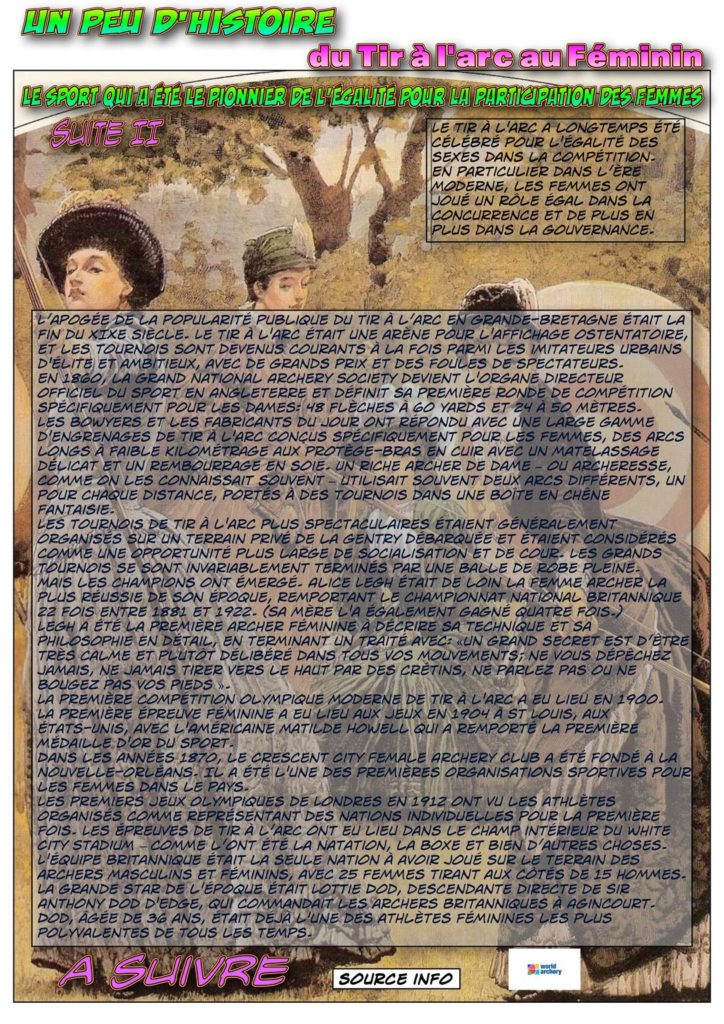 UN PEU D'HISTOIRE
du Tir à l'arc au Féminin
LE SPORT QUI A ÉTÉ LE PIONNIER DE L'ÉGALITÉ POUR LA PARTICIPATION DES FEMMES
SUITE II
LE TIR À L'ARC A LONGTEMPS ÉTÉ
CÉLÉBRÉ POUR L'ÉGALITÉ DES
SEXES DANS LA COMPÉTITION.
EN PARTICULIER DANS L'ÈRE
MODERNE, LES FEMMES ONT
JOUÉ UN RÔLE ÉGAL DANS LA
CONCURRENCE ET DE PLUS EN
PLUS DANS LA GOUVERNANCE.
L'APOGÉE DE LA POPULARITÉ PUBLIQUE DU TIR À L'ARC EN GRANDE-BRETAGNE ÉTAIT LA
FIN DU XIXE SIÈCLE. LE TIR À L'ARC ÉTAIT UNE ARÈNE POUR L'AFFICHAGE OSTENTATOIRE,
ET LES TOURNOIS SONT DEVENUS COURANTS À LA FOIS PARMI LES IMITATEURS URBAINS
D'ÉLITE ET AMBITIEUX, AVEC DE GRANDS PRIX ET DES FOULES DE SPECTATEURS.
EN 1860, LA GRAND NATIONAL ARCHERY SOCIETY DEVIENT L'ORGANE DIRECTEUR
OFFICIEL DU SPORT EN ANGLETERRE ET DÉFINIT SA PREMIÈRE RONDE DE COMPÉTITION
SPÉCIFIQUEMENT POUR LES DAMES: 48 FLÈCHES À 60 YARDS ET 24 À 50 MÈTRES.
LES BOWYERS ET LES FABRICANTS DU JOUR ONT RÉPONDU AVEC UNE LARGE GAMME
D'ENGRENAGES DE TIR À L'ARC CONÇUS SPÉCIFIQUEMENT POUR LES FEMMES, DES ARCS
LONGS À FAIBLE KILOMÉTRAGE AUX PROTÈGE-BRAS EN CUIR AVEC UN MATELASSAGE
DÉLICAT ET UN REMBOURRAGE EN SOIE. UN RICHE ARCHER DE DAME - OU ARCHERESSE,
COMME ON LES CONNAISSAIT SOUVENT - UTILISAIT SOUVENT DEUX ARCS DIFFÉRENTS, UN
POUR CHAQUE DISTANCE, PORTÉS À DES TOURNOIS DANS UNE BOÎTE EN CHÊNE
FANTAISIE.
LES TOURNOIS DE TIR À L'ARC PLUS SPECTACULAIRES ÉTAIENT GÉNÉRALEMENT
ORGANISÉS SUR UN TERRAIN PRIVÉ DE LA GENTRY DÉBARQUÉE ET ÉTAIENT CONSIDÉRÉS
COMME UNE OPPORTUNITÉ PLUS LARGE DE SOCIALISATION ET DE COUR. LES GRANDS
TOURNOIS SE SONT INVARIABLEMENT TERMINÉS PAR UNE BALLE DE ROBE PLEINE.
MAIS LES CHAMPIONS ONT ÉMERGÉ. ALICE LEGH ÉTAIT DE LOIN LA FEMME ARCHER LA
PLUS RÉUSSIE DE SON ÉPOQUE, REMPORTANT LE CHAMPIONNAT NATIONAL BRITANNIQUE
22 FOIS ENTRE 1881 ET 1922. (SA MÈRE L'A ÉGALEMENT GAGNÉ QUATRE FOIS.)
LEGH A ÉTÉ LA PREMIÈRE ARCHER FÉMININE À DÉCRIRE SA TECHNIQUE ET SA
PHILOSOPHIE EN DÉTAIL, EN TERMINANT UN TRAITÉ AVEC: «UN GRAND SECRET EST D'ÊTRE
TRÈS CALME ET PLUTÔT DÉLIBÉRÉ DANS TOUS VOS MOUVEMENTS; NE VOUS DÉPÊCHEZ
JAMAIS, NE JAMAIS TIRER VERS LE HAUT PAR DES CRÉTINS, NE PARLEZ PAS OU NE
BOUGEZ PAS VOS PIEDS ».
LA PREMIÈRE COMPÉTITION OLYMPIQUE MODERNE DE TIR À L'ARC A EU LIEU EN 1900.
LA PREMIÈRE ÉPREUVE FÉMININE A EU LIEU AUX JEUX EN 1904 À ST LOUIS, AUX
ÉTATS-UNIS, AVEC L'AMÉRICAINE MATILDE HOWELL QUI A REMPORTÉ LA PREMIÈRE
MÉDAILLE D'OR DU SPORT.
DANS LES ANNÉES 1870, LE CRESCENT CITY FEMALE ARCHERY CLUB A ÉTÉ FONDÉ À LA
NOUVELLE-ORLÉANS. IL A ÉTÉ L'UNE DES PREMIÈRES ORGANISATIONS SPORTIVES POUR
LES FEMMES DANS LE PAYS.
LES PREMIERS JEUX OLYMPIQUES DE LONDRES EN 1912 ONT VU LES ATHLÈTES
ORGANISÉS COMME REPRÉSENTANT DES NATIONS INDIVIDUELLES POUR LA PREMIÈRE
FOIS. LES ÉPREUVES DE TIR À L'ARC ONT EU LIEU DANS LE CHAMP INTÉRIEUR DU WHITE
CITY STADIUM - COMME L'ONT ÉTÉ LA NATATION, LA BOXE ET BIEN D'AUTRES CHOSES.
L'ÉQUIPE BRITANNIQUE ÉTAIT LA SEULE NATION À AVOIR JOUÉ SUR LE TERRAIN DES
ARCHERS MASCULINS ET FÉMININS, AVEC 25 FEMMES TIRANT AUX CÔTÉS DE 15 HOMMES.
LA GRANDE STAR DE L'ÉPOQUE ÉTAIT LOTTIE DOD, DESCENDANTE DIRECTE DE SIR
ANTHONY DOD D'EDGE, QUI COMMANDAIT LES ARCHERS BRITANNIQUES À AGINCOURT.
DOD, ÂGÉE DE 36 ANS, ÉTAIT DÉJÀ L'UNE DES ATHLÈTES FÉMININES LES PLUS
POLYVALENTES DE TOUS LES TEMPS.
A SUIVRE
SOURCE INFO
world
archery